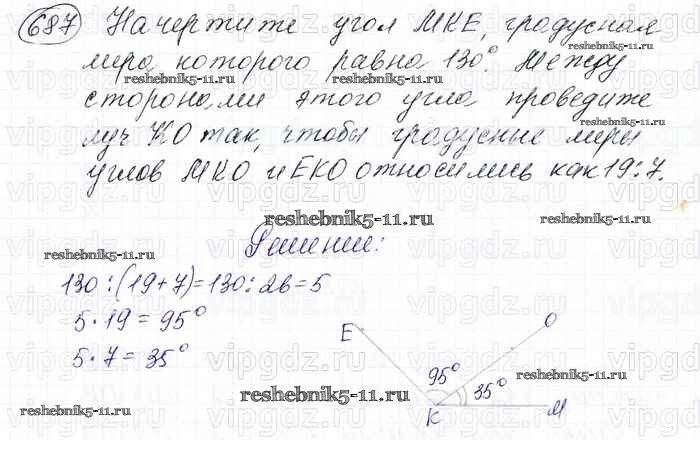 687 Начертите угол МКЕ, градусная
мера которого равна 130°. Между
reshebnik5-11.ru reshebnik5-11.ru
сторонами этого угла проведите
reshebnik5-11.ru
луч КО так, чтобы градусные меры
углов МКО и ЕКО относились как 19:7.
reshebnik5-11.ru reshebnik5-11.ru
Решение:
reshebnik5-11.ru
130:(19+7)=130:26=5
5·19=95°
5·7=35°
E O
95° 35°
K M
reshebnik5-11.ru reshebnik5-11.ru
vipgdz.ru vipgdz.ru vipgdz.ru vipgdz.ru